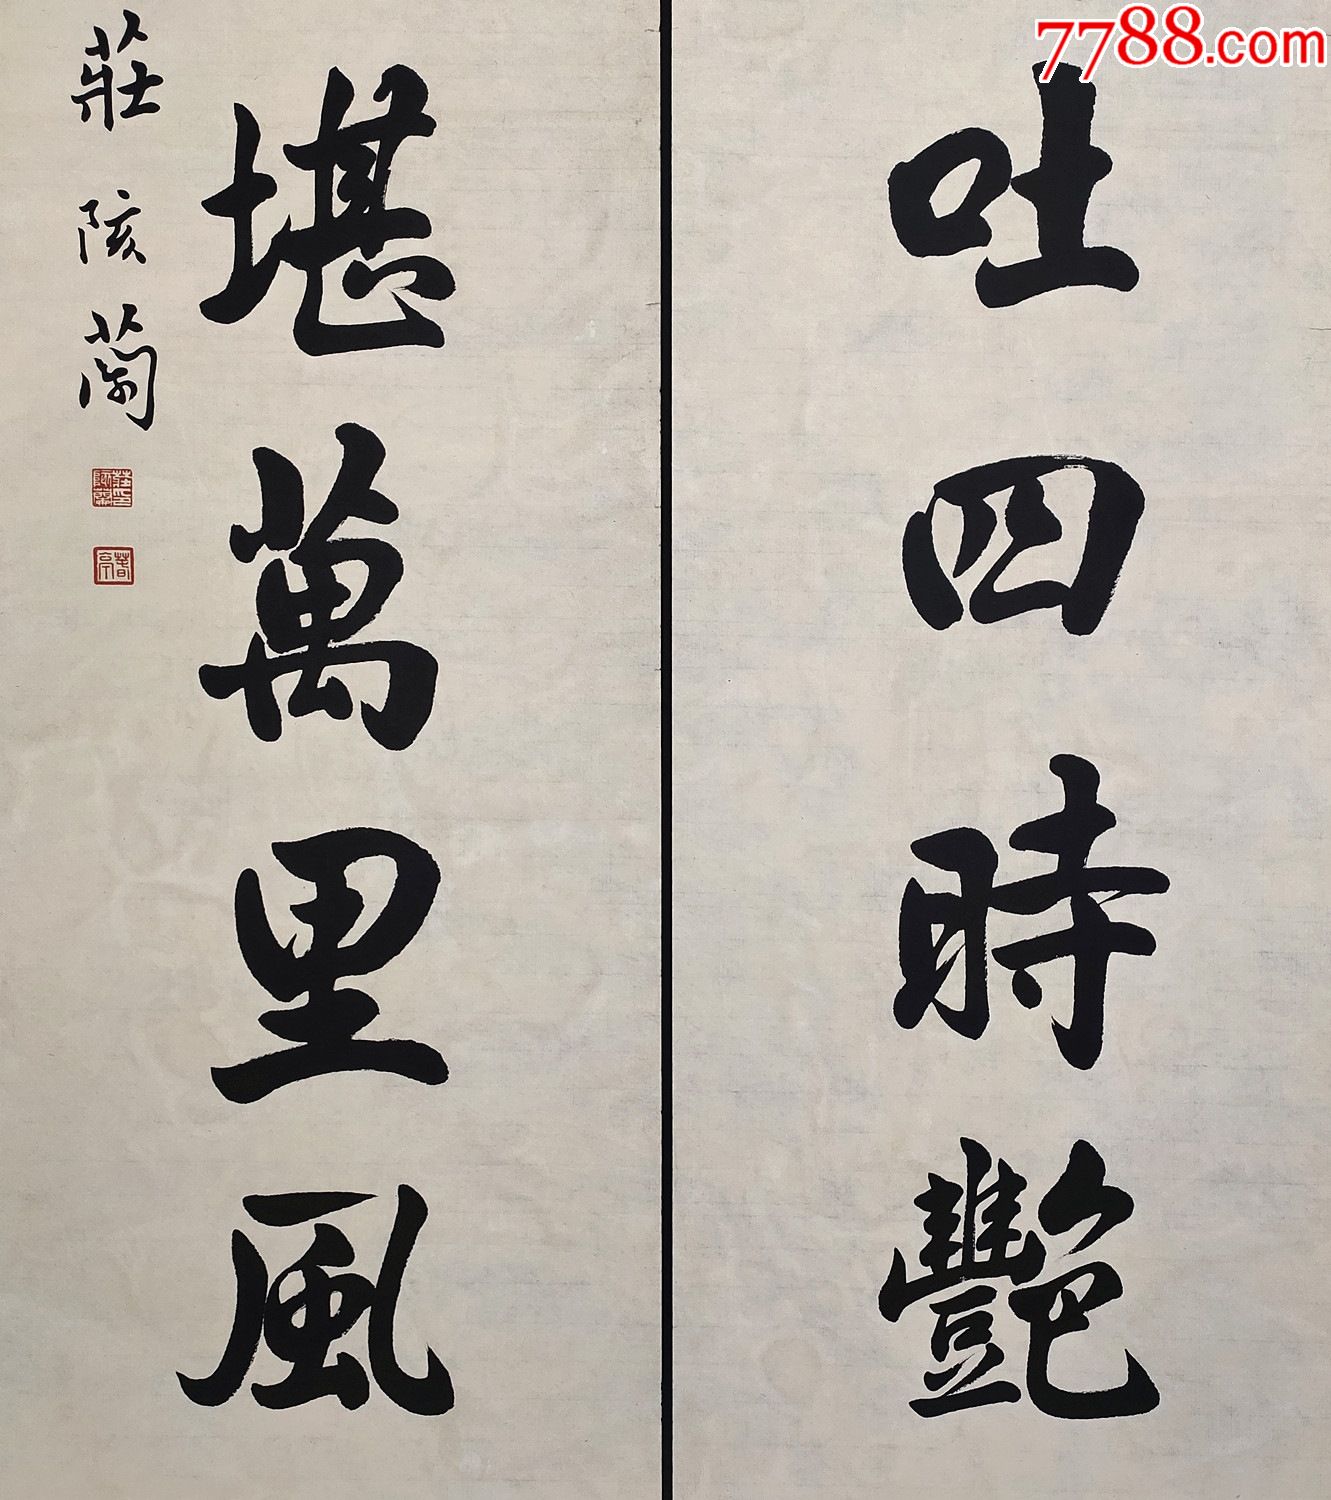 7788.com
吐四時艷
堪萬里風
莊陔蘭